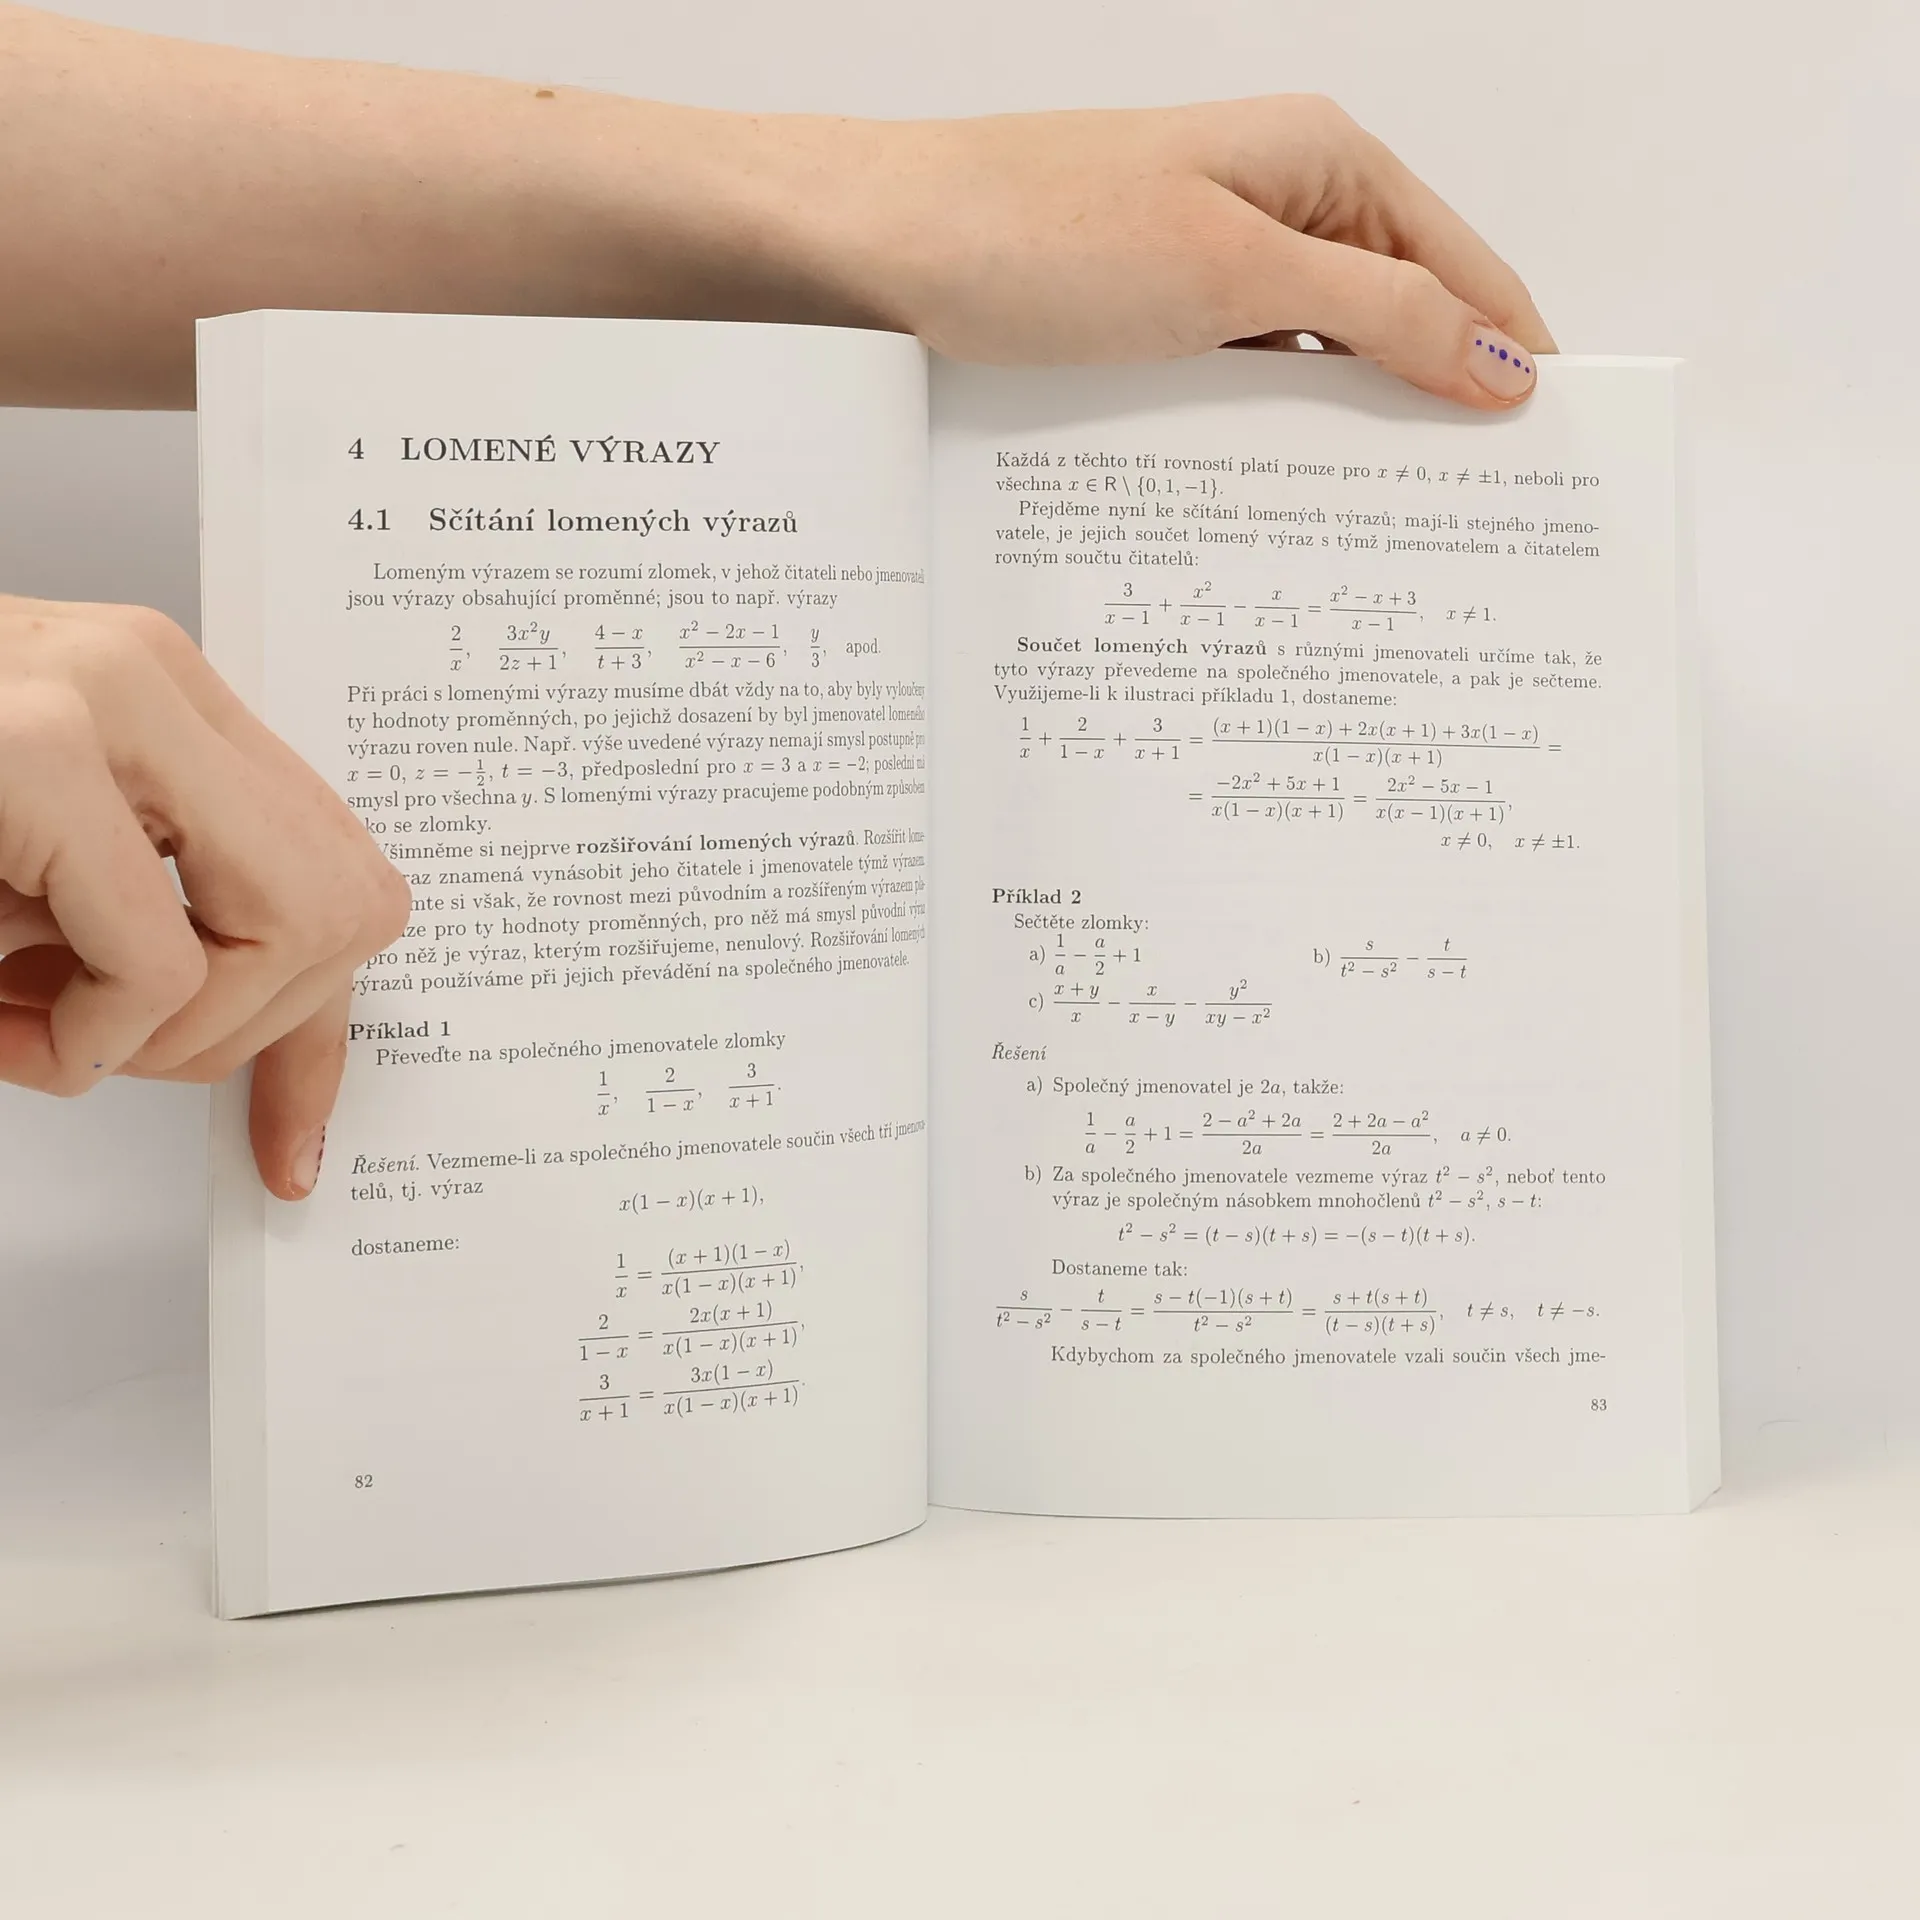 4 LOMENÉ VÝRAZY
4.1 Sčítání lomených výrazů
Lomeným výrazem se rozumí zlomek, v jehož čitateli nebo jmenovateli
jsou výrazy obsahující proměnné; jsou to např. výrazy
2/x, 3x²y/(2z + 1), (4 − x)/(t + 3), (x² − 2x − 1)/(x² − x − 6), y/3, apod.
Při práci s lomenými výrazy musíme dbát vždy na to, aby byly vyloučeny
ty hodnoty proměnných, po jejichž dosazení by byl jmenovatel lomeného
výrazu roven nule. Např. výše uvedené výrazy nemají smysl postupně pro
x = 0, z = −1/2, t = −3, předposlední pro x = 3 a x = −2; poslední má
smysl pro všechna y. S lomenými výrazy pracujeme podobným způsobem
ko se zlomky.
šimněme si nejprve rozšiřování lomených výrazů. Rozšířit lome-
raz znamená vynásobit jeho čitatele i jmenovatele týmž výrazem
mte si však, že rovnost mezi původním a rozšířeným výrazem pla-
ze pro ty hodnoty proměnných, pro něž má smysl původní výraz
pro něž je výraz, kterým rozšiřujeme, nenulový. Rozšiřování lomených
výrazů používáme při jejich převádění na společného jmenovatele.
Příklad 1
Převeďte na společného jmenovatele zlomky
1/x, 2/(1 − x), 3/(x + 1).
Řešení. Vezmeme-li za společného jmenovatele součin všech tří jmenova-
telů, tj. výraz
x(1 − x)(x + 1),
dostaneme:
1/x = (x + 1)(1 − x)/(x(1 − x)(x + 1)),
2/(1 − x) = 2x(x + 1)/(x(1 − x)(x + 1)),
3/(x + 1) = 3x(1 − x)/(x(1 − x)(x + 1)).
82
Každá z těchto tří rovností platí pouze pro x ≠ 0, x ≠ ±1, neboli pro
všechna x ∈ R \ {0, 1, −1}.
Přejděme nyní ke sčítání lomených výrazů; mají-li stejného jmeno-
vatele, je jejich součet lomený výraz s týmž jmenovatelem a čitatelem
rovným součtu čitatelů:
3/(x − 1) + x²/(x − 1) − x/(x − 1) = (x² − x + 3)/(x − 1), x ≠ 1.
Součet lomených výrazů s různými jmenovateli určíme tak, že
tyto výrazy převedeme na společného jmenovatele, a pak je sečteme.
Využijeme-li k ilustraci příkladu 1, dostaneme:
1/x + 2/(1 − x) + 3/(x + 1) = ((x + 1)(1 − x) + 2x(x + 1) + 3x(1 − x))/(x(1 − x)(x + 1)) =
= (−2x² + 5x + 1)/(x(1 − x)(x + 1)) = (2x² − 5x − 1)/(x(x − 1)(x + 1)),
x ≠ 0, x ≠ ±1.
Příklad 2
Sečtěte zlomky:
a) 1/a − a/2 + 1 b) s/(t² − s²) − t/(s − t)
c) (x + y)/x − x/(x − y) − y²/(xy − x²)
Řešení
a) Společný jmenovatel je 2a, takže:
1/a − a/2 + 1 = (2 − a² + 2a)/2a = (2 + 2a − a²)/2a, a ≠ 0.
b) Za společného jmenovatele vezmeme výraz t² − s², neboť tento
výraz je společným násobkem mnohočlenů t² − s², s − t:
t² − s² = (t − s)(t + s) = −(s − t)(t + s).
Dostaneme tak:
s/(t² − s²) − t/(s − t) = (s − t(−1)(s + t))/(t² − s²) = (s + t(s + t))/((t − s)(t + s)), t ≠ s, t ≠ −s.
Kdybychom za společného jmenovatele vzali součin všech jme-
83